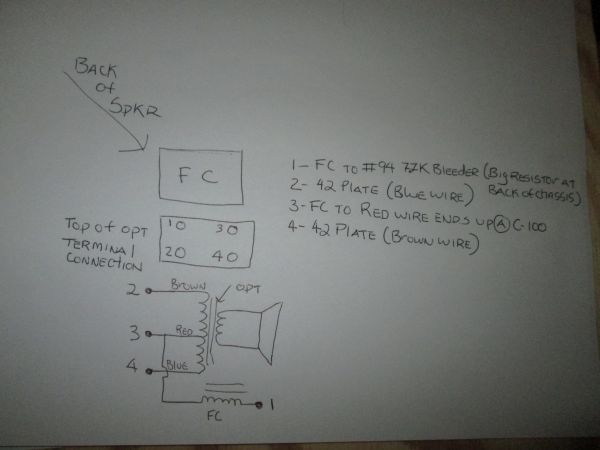 BACK
of
SPKR
FC
1 – FC TO #94 7.7K Bleeder (Big RESISTOR AT
BACK of CHASSIS)
2 - 42 PLATE (BLUE WIRE)
3 - FC TO RED WIRE ENDS UP @ C-100
4 - 42 PLATE (BROWN WIRE)
TOP of OPT
TERMINAL
CONNECTION
1O 3O
2O 4O
2 BROWN OPT
3 RED
4 BLUE
FC 1